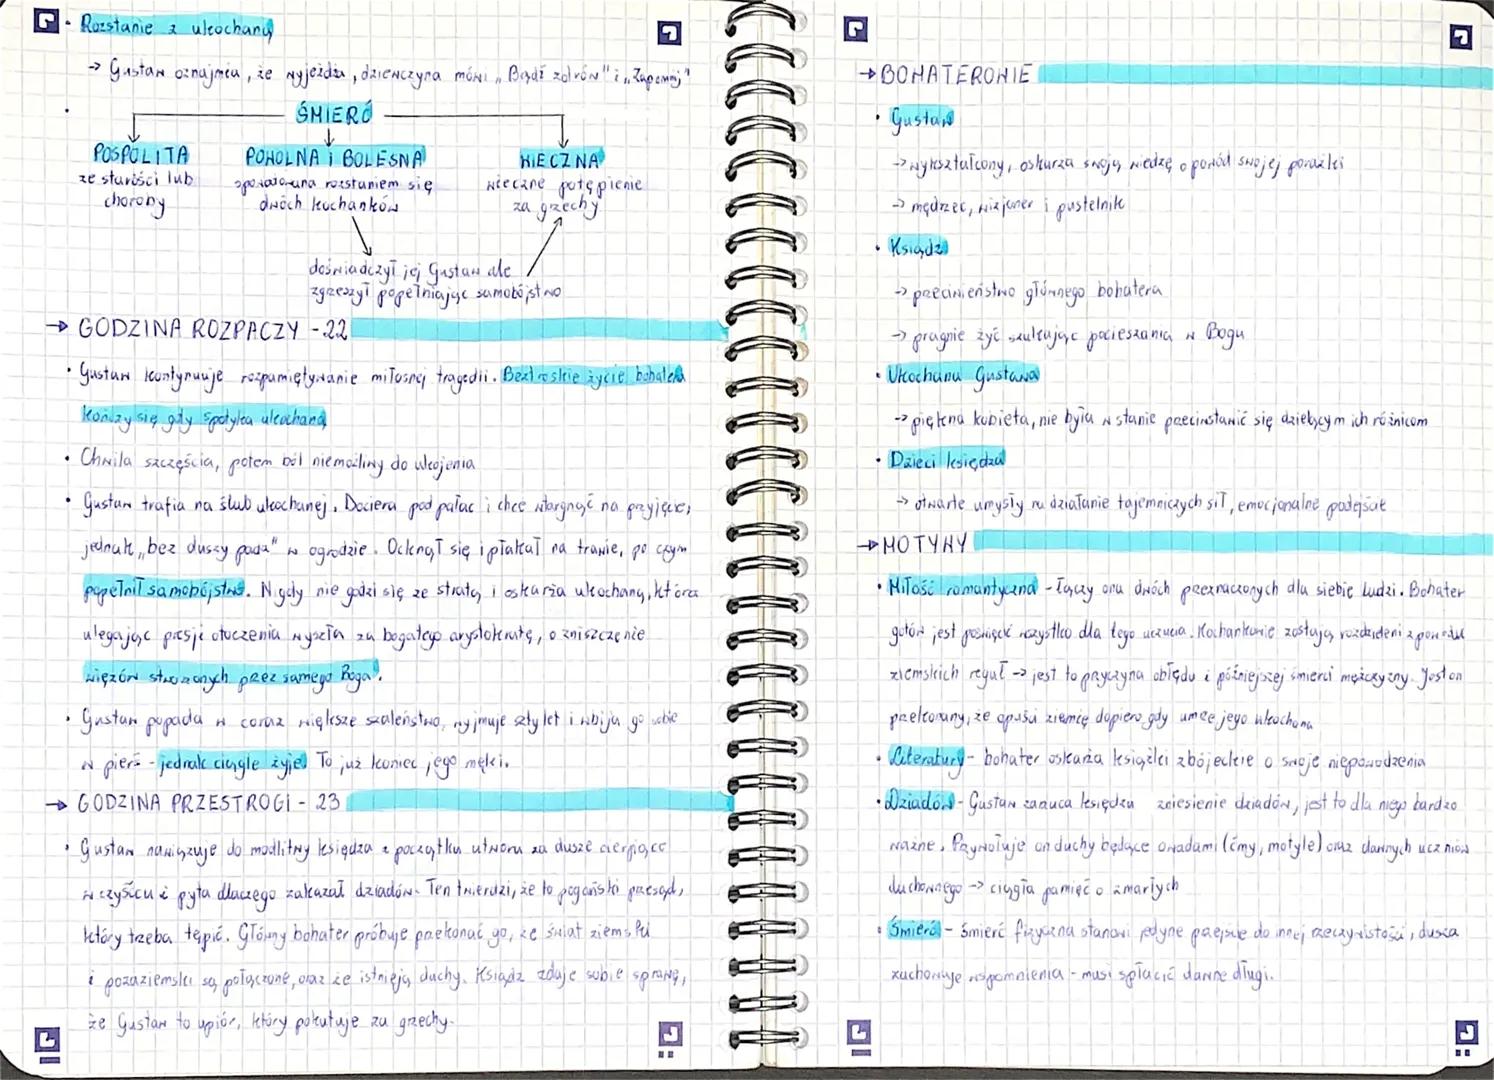 • Rozstanie z ukochaną
→ Gustaw oznajmia, że wyjeżdża, dziewczyna mówi „Bądź zdrów" i „Zapomnij"
• ŚMIERĆ
POSPOLITA
ze starości lub
choroby
POWOLNA i BOLESNA
spowodowana rozstaniem się
dwóch kochanków
WIECZNA
wieczne potępienie
za grzechy
doświadczył jej Gustaw ale
zgrzeszył popełniając samobójstwo
→ GODZINA ROZPACZY - 22
• Gustaw kontynuuje rozpamiętywanie miłosnej tragedii. Beztroskie życie bohatera
kończy się gdy spotyka ukochaną
• Chwila szczęścia, potem ból niemożliwy do ukojenia
• Gustaw trafia na ślub ukochanej. Dociera pod pałac i chce wtargnąć na przyjęcie,
jednak „bez duszy pada" w ogrodzie. Ocknął się i płakał na trawie, po czym
popełnił samobójstwo. Nigdy nie godzi się ze stratą i oskarża ukochaną, która
ulegając presji otoczenia wyszła za bogatego arystokratę, o zniszczenie
więzów stworzonych przez samego Boga.
• Gustaw popada w coraz większe szaleństwo, wyjmuje sztylet i wbija go sobie
w pierś - jednak ciągle żyje. To już koniec jego męki.
→ GODZINA PRZESTROGI - 23
• Gustaw nawiązuje do modlitwy księdza z początku utworu za dusze cierpiące
w czyśćcu i pyta dlaczego zakazał dziadów. Ten twierdzi, że to pogański przesąd,
który trzeba tępić. Główny bohater próbuje przekonać go, że świat ziemski
i pozaziemski są połączone, oraz że istnieją duchy. Ksiądz zdaje sobie sprawę,
że Gustaw to upiór, który pokutuje za grzechy.
→ BOHATEROWIE
• Gustaw
→ wykształcony, oskarża swoją wiedzę o powód swojej porażki
→ mędrzec, wizjoner i pustelnik
• Ksiądz
→ przeciwieństwo głównego bohatera
→ pragnie żyć szukając pocieszania w Bogu
• Ukochana Gustawa
→ piękna kobieta, nie była w stanie przeciwstawić się dzielącym ich różnicom
• Dzieci księdza
→ otwarte umysły na działanie tajemniczych sił, emocjonalne podejście
→ MOTYWY
• Miłość romantyczna - łączy ona dwóch przeznaczonych dla siebie ludzi. Bohater
gotów jest poświęcić wszystko dla tego uczucia. Kochankowie zostają rozdzieleni z powodu
ziemskich reguł → jest to przyczyna obłędu i późniejszej śmierci mężczyzny. Jest on
przekonany, że opuści ziemię dopiero gdy umrze jego ukochana
• Literatury - bohater oskarża książki zbójeckie o swoje niepowodzenia
• Dziadów - Gustaw zarzuca księdzu zniesienie dziadów, jest to dla niego bardzo
ważne. Przywołuje on duchy będące owadami (ćmy, motyle) oraz dawnych uczniów
duchownego → ciągła pamięć o zmarłych
• Śmierć - śmierć fizyczna stanowi jedyne przejście do innej rzeczywistości, dusza
zachowuje wspomnienia - musi spłacić dawne długi.